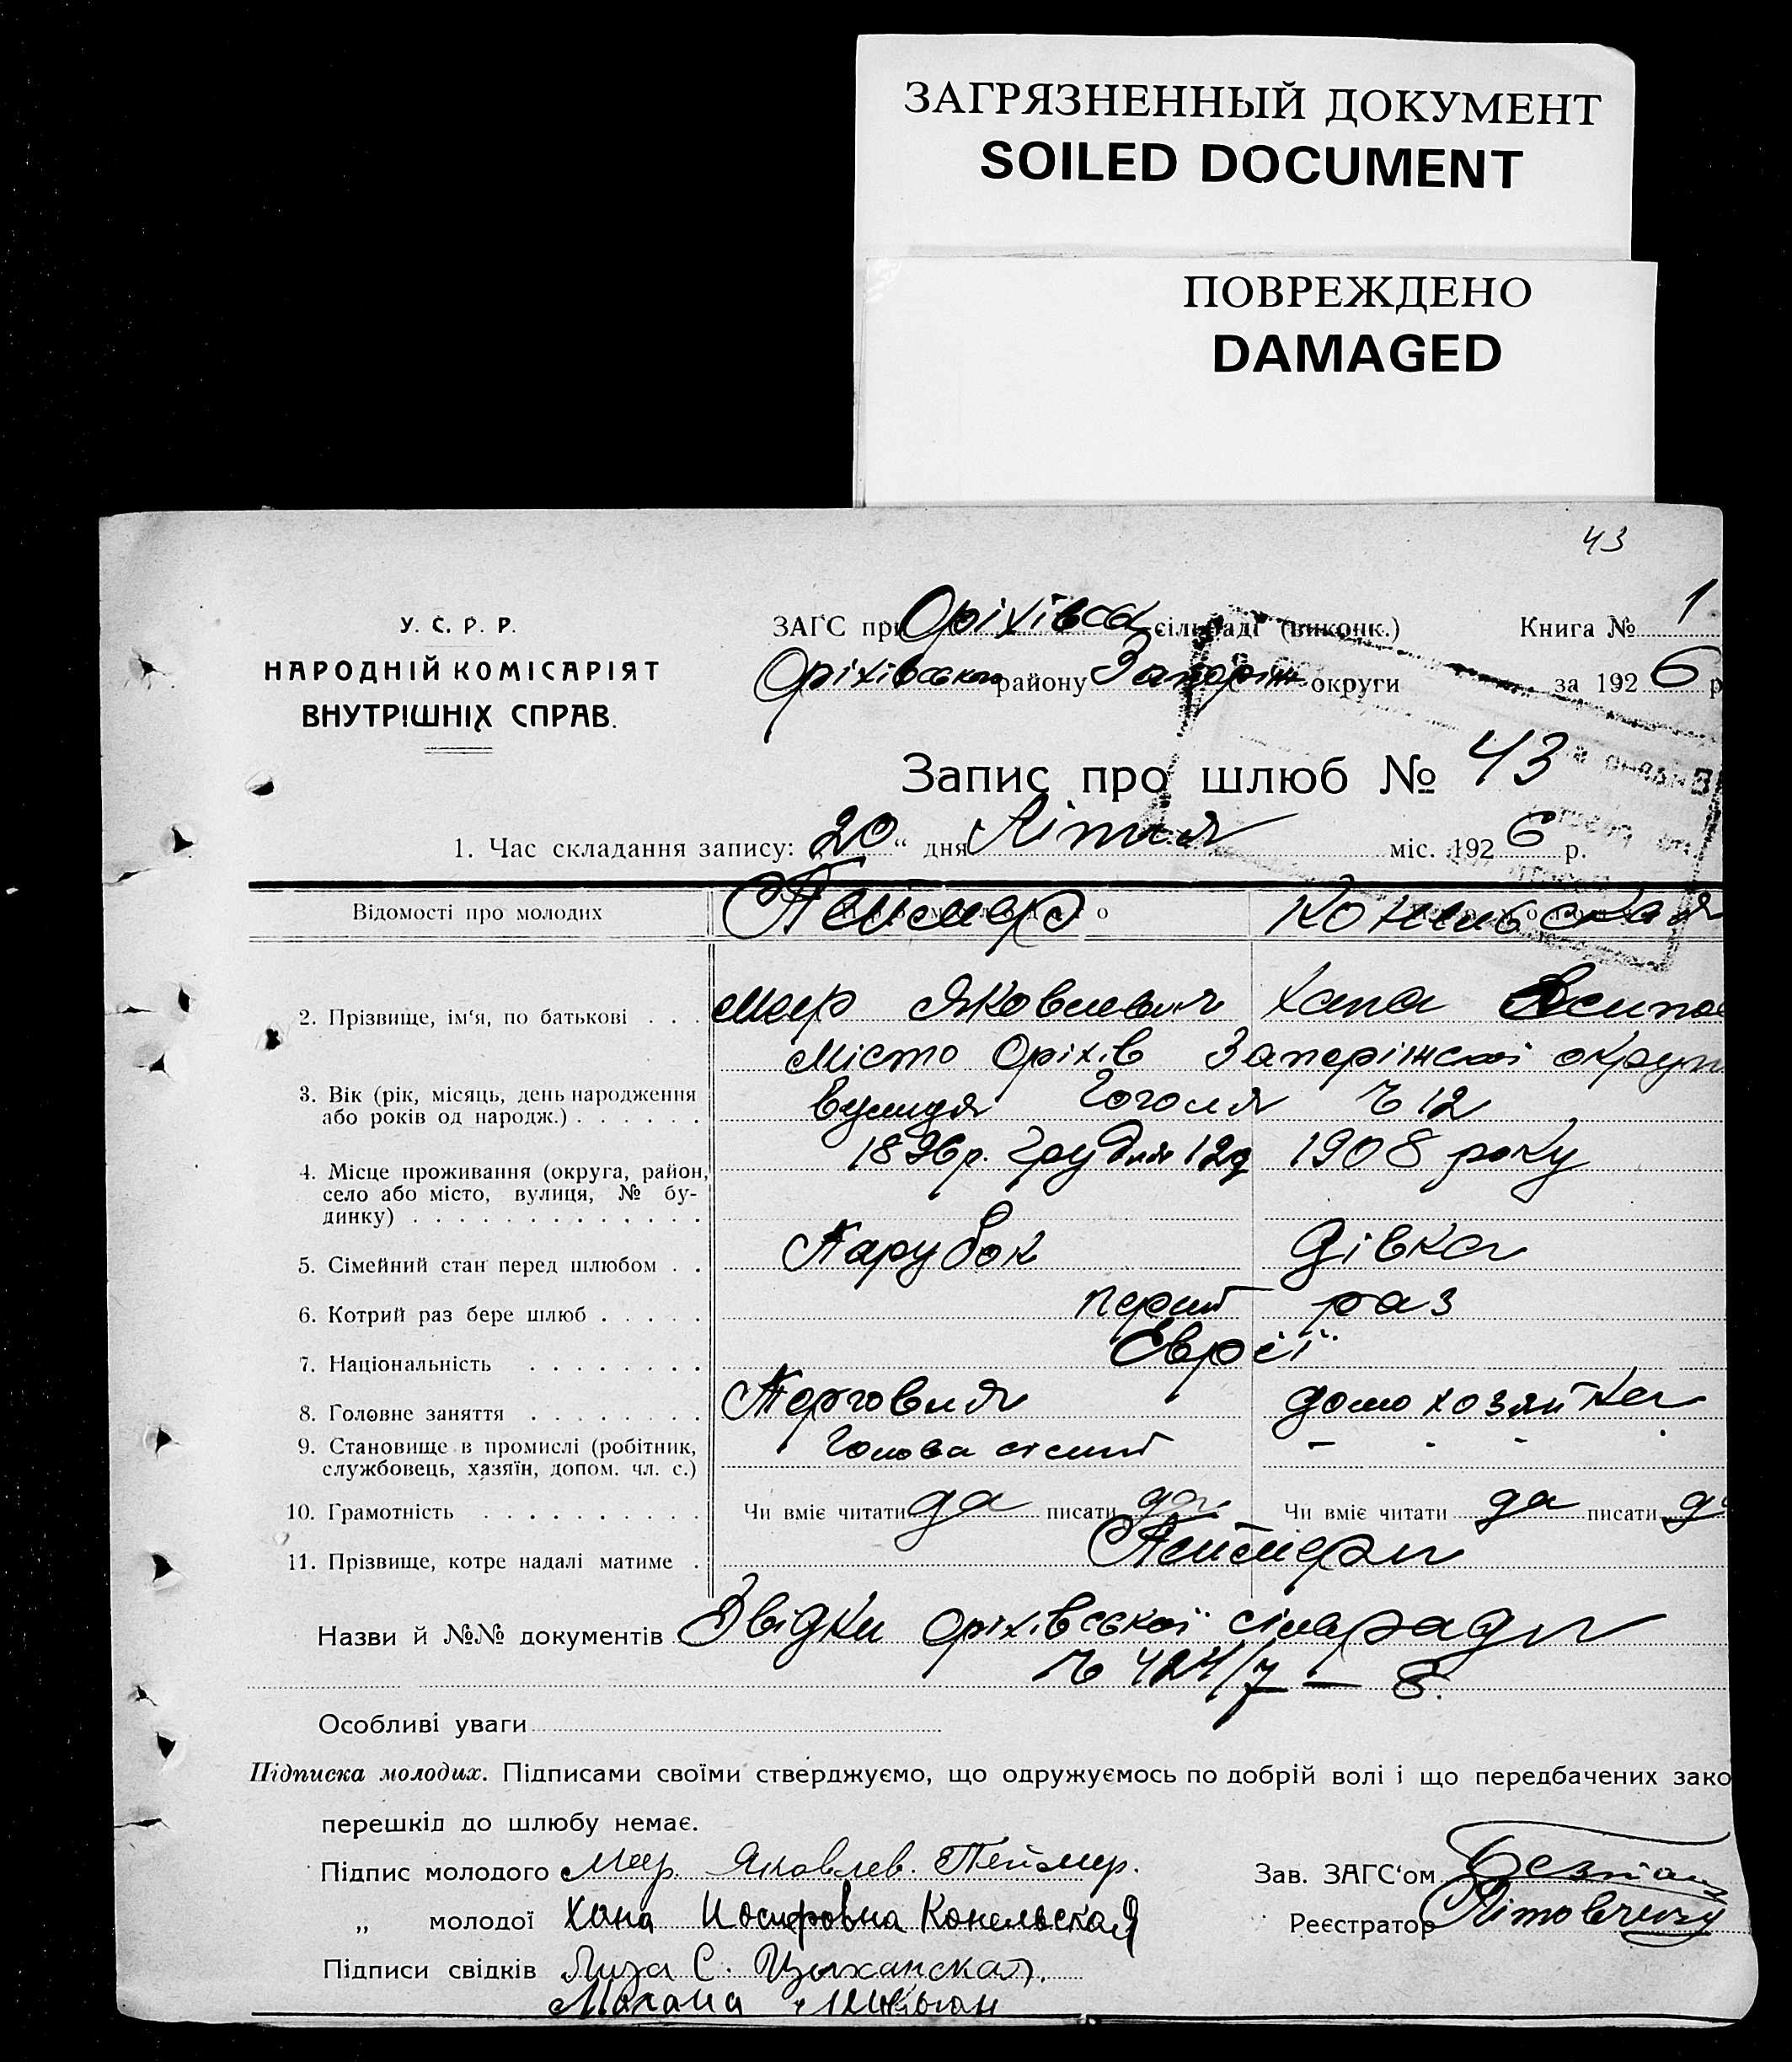 ЗАГРЯЗНЕННЫЙ ДОКУМЕНТ
SOILED DOCUMENT
ПОВРЕЖДЕНО
DAMAGED
43
У. С. Р. Р.
НАРОДНІЙ КОМІСАРІЯТ
ВНУТРІШНІХ СПРАВ.
ЗАГС при Оріхівськ сільраді (виконк.) Книга № 1
Оріхівського району Запоріж округи за 1926 р
Запис про шлюб № 43
1. Час складання запису: „20“ дня Літня міс. 1926 р.
Відомості про молодих Пейсмер Конельская
2. Прізвище, ім'я, по батькові . . . Меер Яковлевич Хана
Місто Оріхів Запоріжської округи
3. Вік (рік, місяць, день народження
або років од народж.) . . . . . . вулиця Гоголя № 12
1896 р. Грудня 12д 1908 року
4. Місце проживання (округа, район,
село або місто, вулиця, № бу-
динку) . . . . . . . . . . . . .
5. Сімейний стан перед шлюбом . . Парубок Дівка
6. Котрий раз бере шлюб . . . . . перший раз
7. Національність . . . . . . . . Євреї
8. Головне заняття . . . . . . . . Торговля домохозяйка
9. Становище в промислі (робітник,
службовець, хазяїн, допом. чл. с.) Голова сiм'ї - - -
10. Грамотність . . . . . . . . . . Чи вміє читати да писати да Чи вміє читати да писати да
11. Прізвище, котре надалі матиме .
Назви й №№ документів Звідки Оріхівської сільради
№ 424/7 — 8.
Особливі уваги
Підписка молодих. Підписами своїми стверджуємо, що одружуємось по добрій волі і що передбачених зако
перешкід до шлюбу немає.
Підпис молодого Меер. Яковлев. Зав. ЗАГС'ом
„ молодої Хана Иосифовна Конельская Реєстратор
Підписи свідків Лиза С. Цыханская.